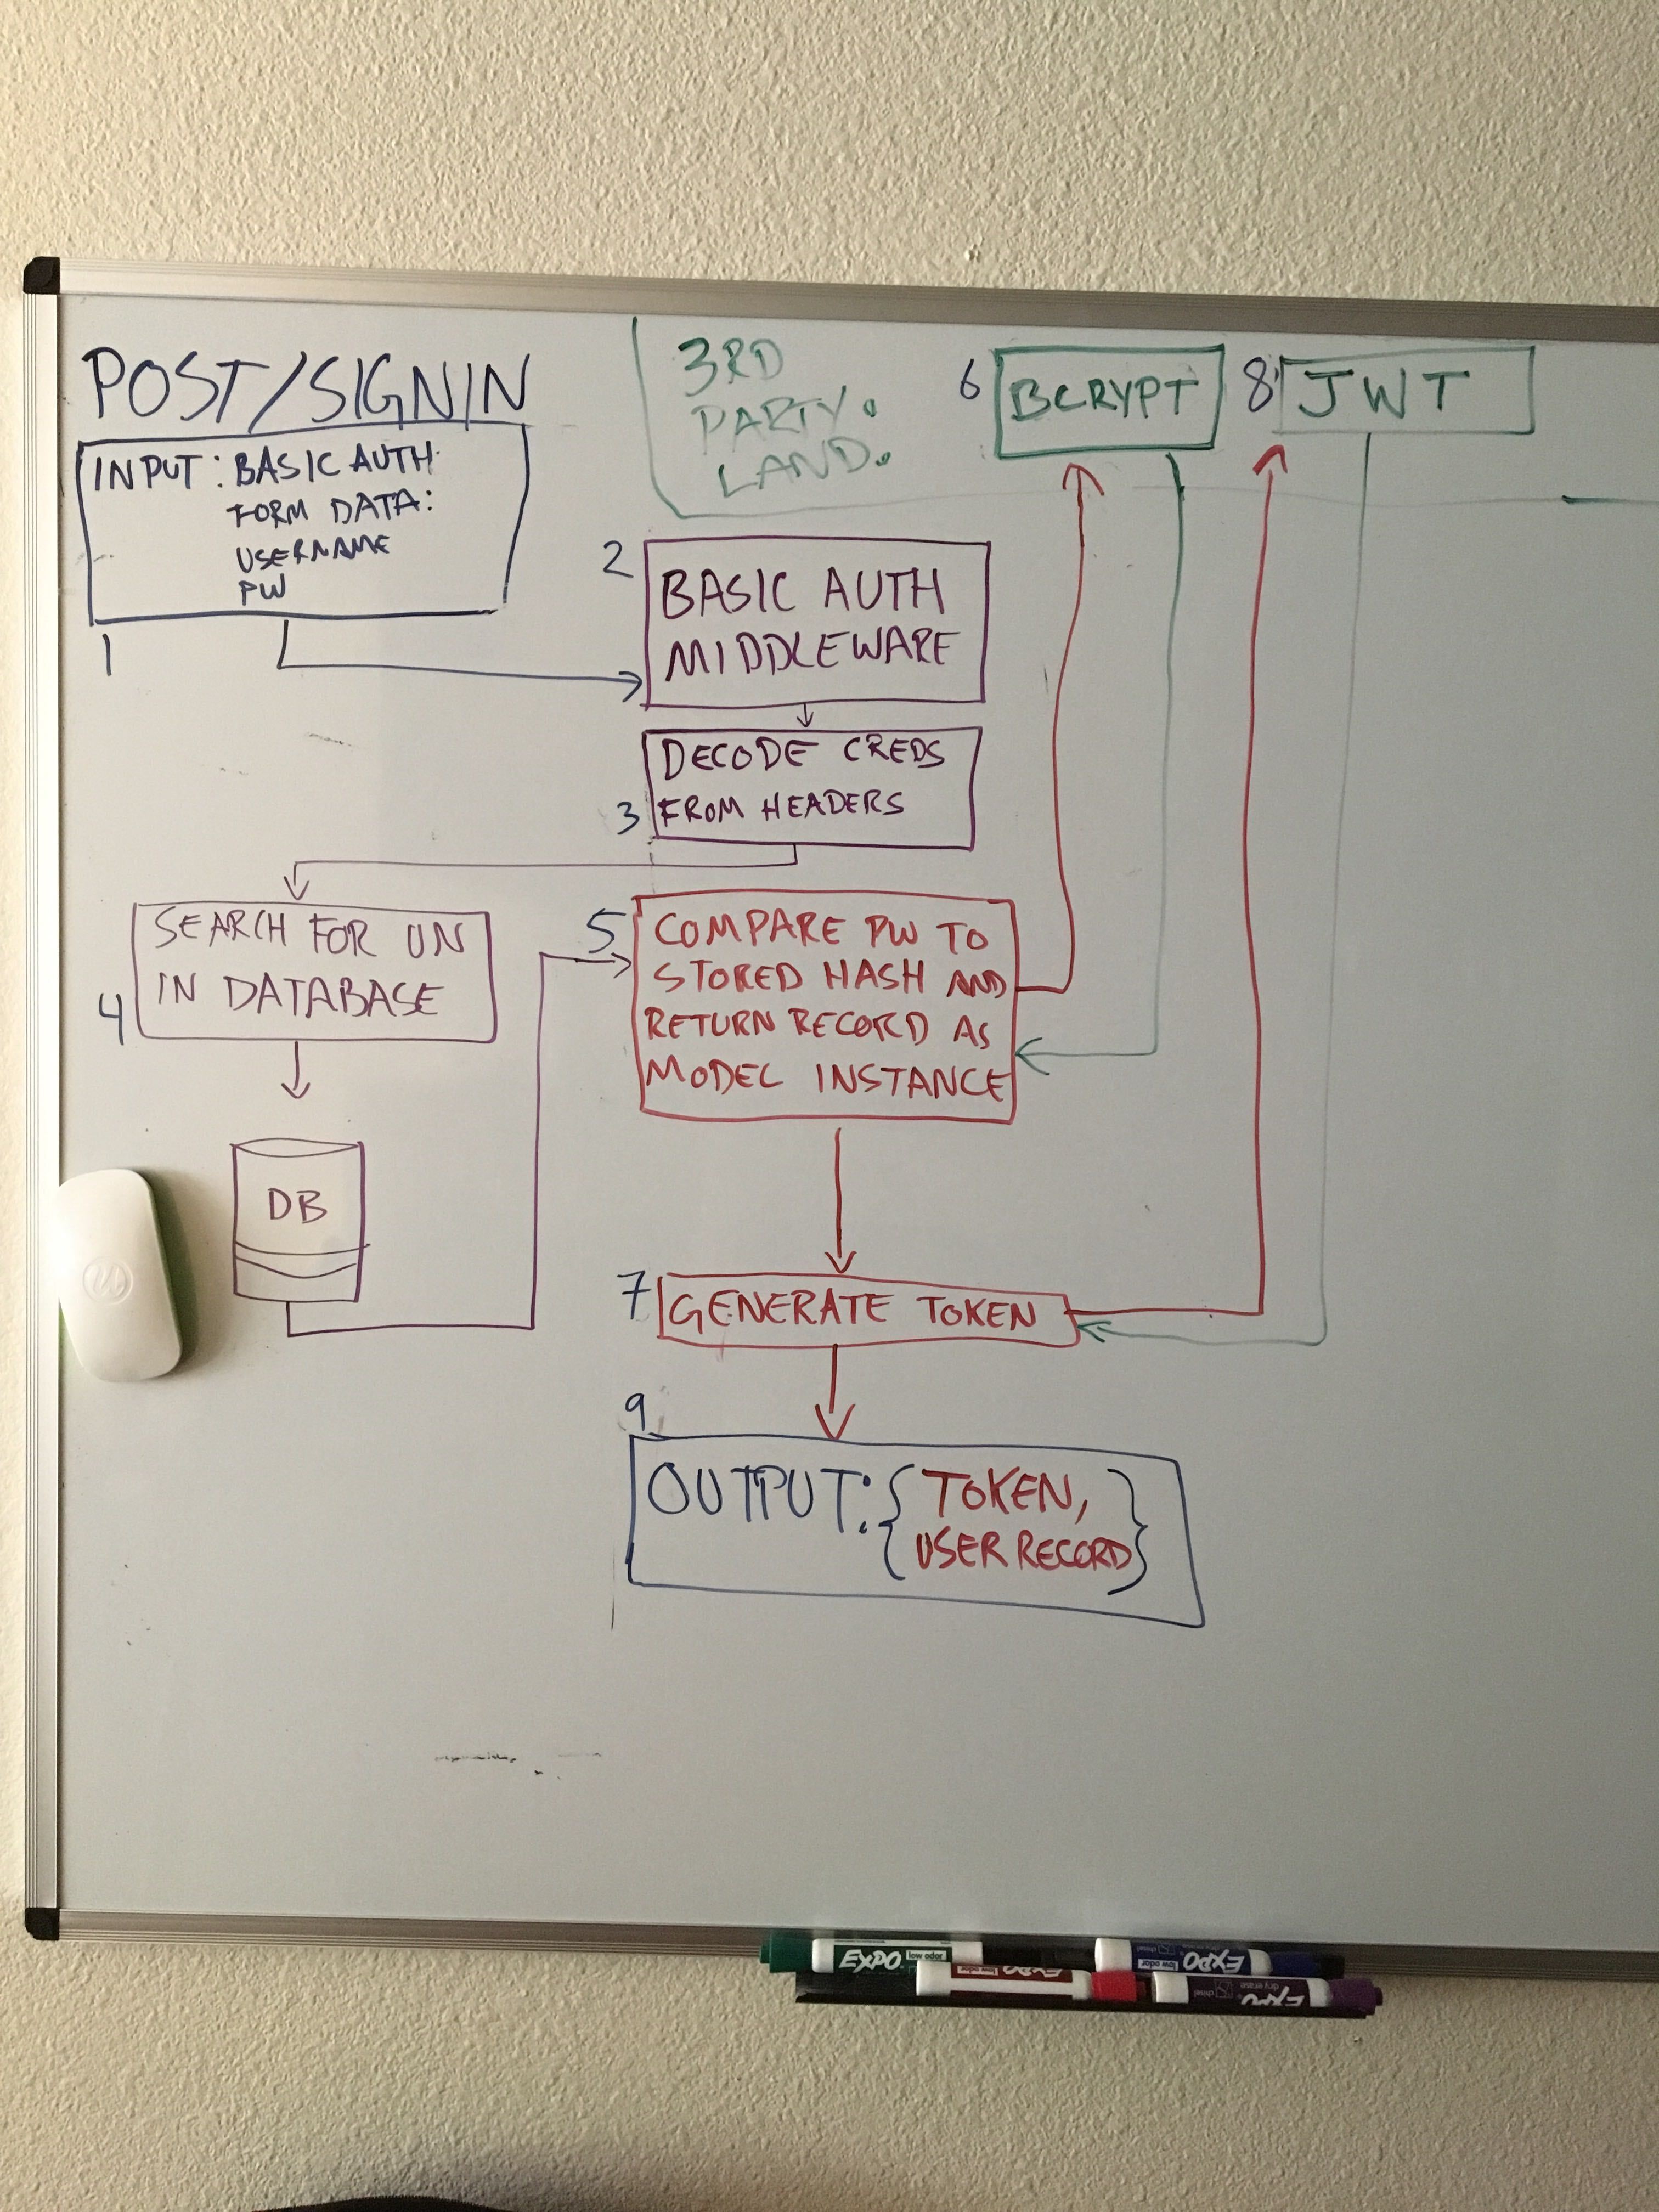 POST/SIGNIN
INPUT: BASIC AUTH
FORM DATA:
USERNAME
PW
1
3RD
PARTY.
LAND.
6
BCRYPT
8
JWT
2
BASIC AUTH
MIDDLEWARE
3
DECODE CREDS
FROM HEADERS
4
SEARCH FOR UN
IN DATABASE
DB
5
COMPARE PW TO
STORED HASH AND
RETURN RECORD AS
MODEL INSTANCE
7
GENERATE TOKEN
9
OUTPUT: { TOKEN,
USER RECORD }
EXPO low odor
low odor EXPO
low odor EXPO
EXPO dry erase